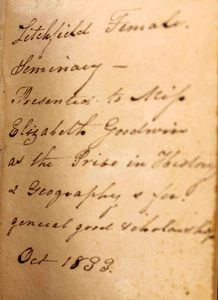 Litchfield Female
Seminary —
Presented to Miss
Elizabeth Goodwin
as the Prize in History
& Geography & for
general good scholarship
Oct 1833.